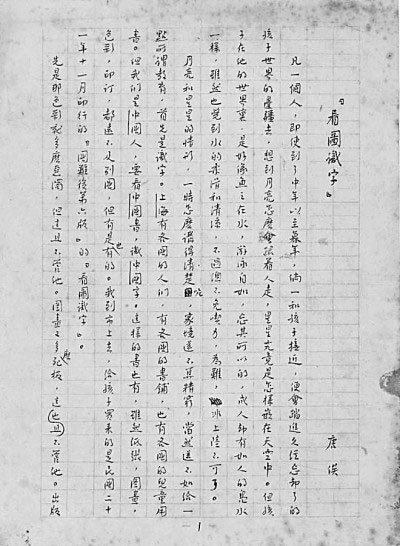 「看圖識字」。
唐俟
凡一個人，即使到了中年以至暮年，倘一和孩子接近，便會踏進久經忘却了的
孩子世界的邊疆去，想到月亮怎麽會跟着人走，星星究竟是怎樣嵌在天空中。但孩
子在他的世界裏，是好像魚之在水，游泳自如，忘其所以的，成人却有如人的鳧水
一樣，雖然也覺到水的柔滑和清涼，不過總不免喫力，爲難，非上陸不可了。
月亮和星星的情形，一時怎麽講得清楚呢，家境還不算精窮，當然還不如給一
點所謂教育，首先是識字。上海有各國的人們，有各國的書鋪，也有各國的兒童用
書。但我們是中國人，要看中國書，識中國字。這樣的書也有，雖然紙張，圖畫，
色彩，印訂，都遠不及別國，但有是也有的。我到市上去，給孩子買來的是民國二十
一年十一月印行的「國難後第六版」的「看圖識字」。
先是那色彩就多麽惡濁，但這且不管他。圖畫又多麽死板，這也且不管他。出版
1